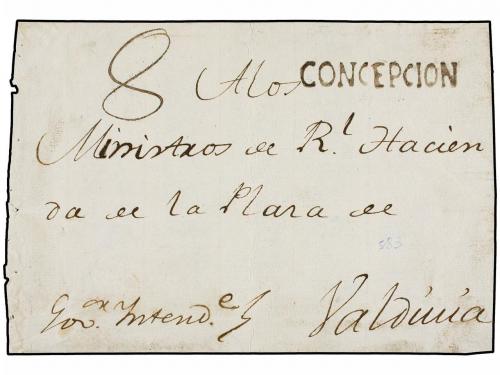 8 A los CONCEPCION
Ministros de Rl. Hacien
da de la Plaza de
583
Gov.or Intend.e Valdivia